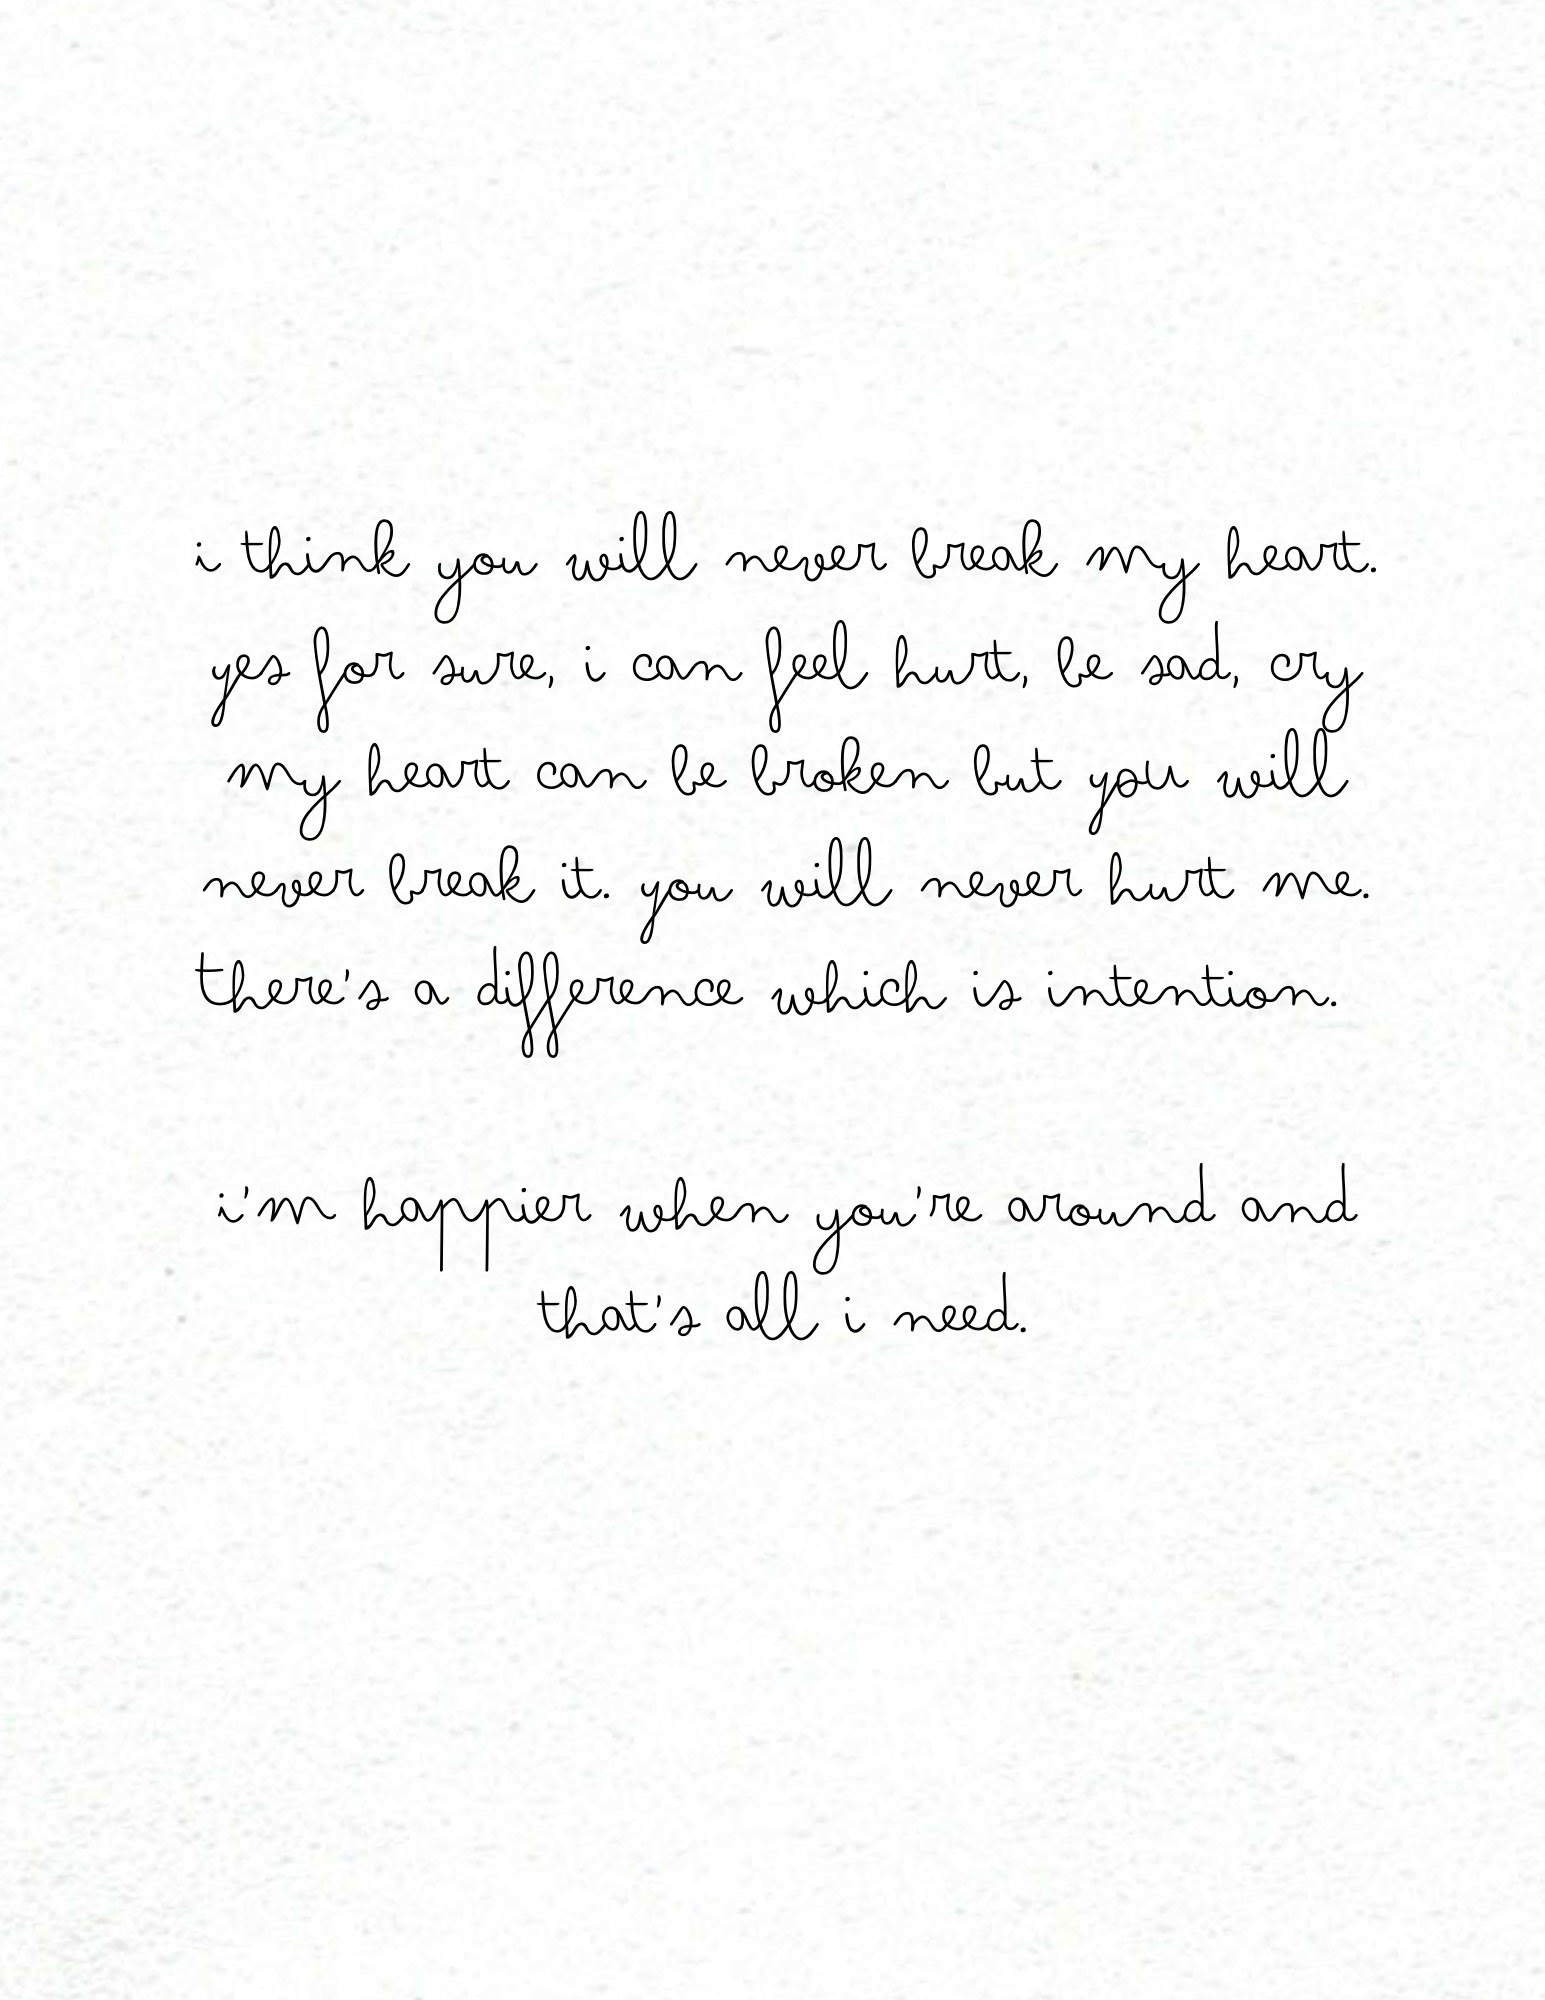 i think you will never break my heart.
yes for sure, i can feel hurt, be sad, cry
my heart can be broken but you will
never break it. you will never hurt me.
there's a difference which is intention.
i'm happier when you're around and
that's all i need.